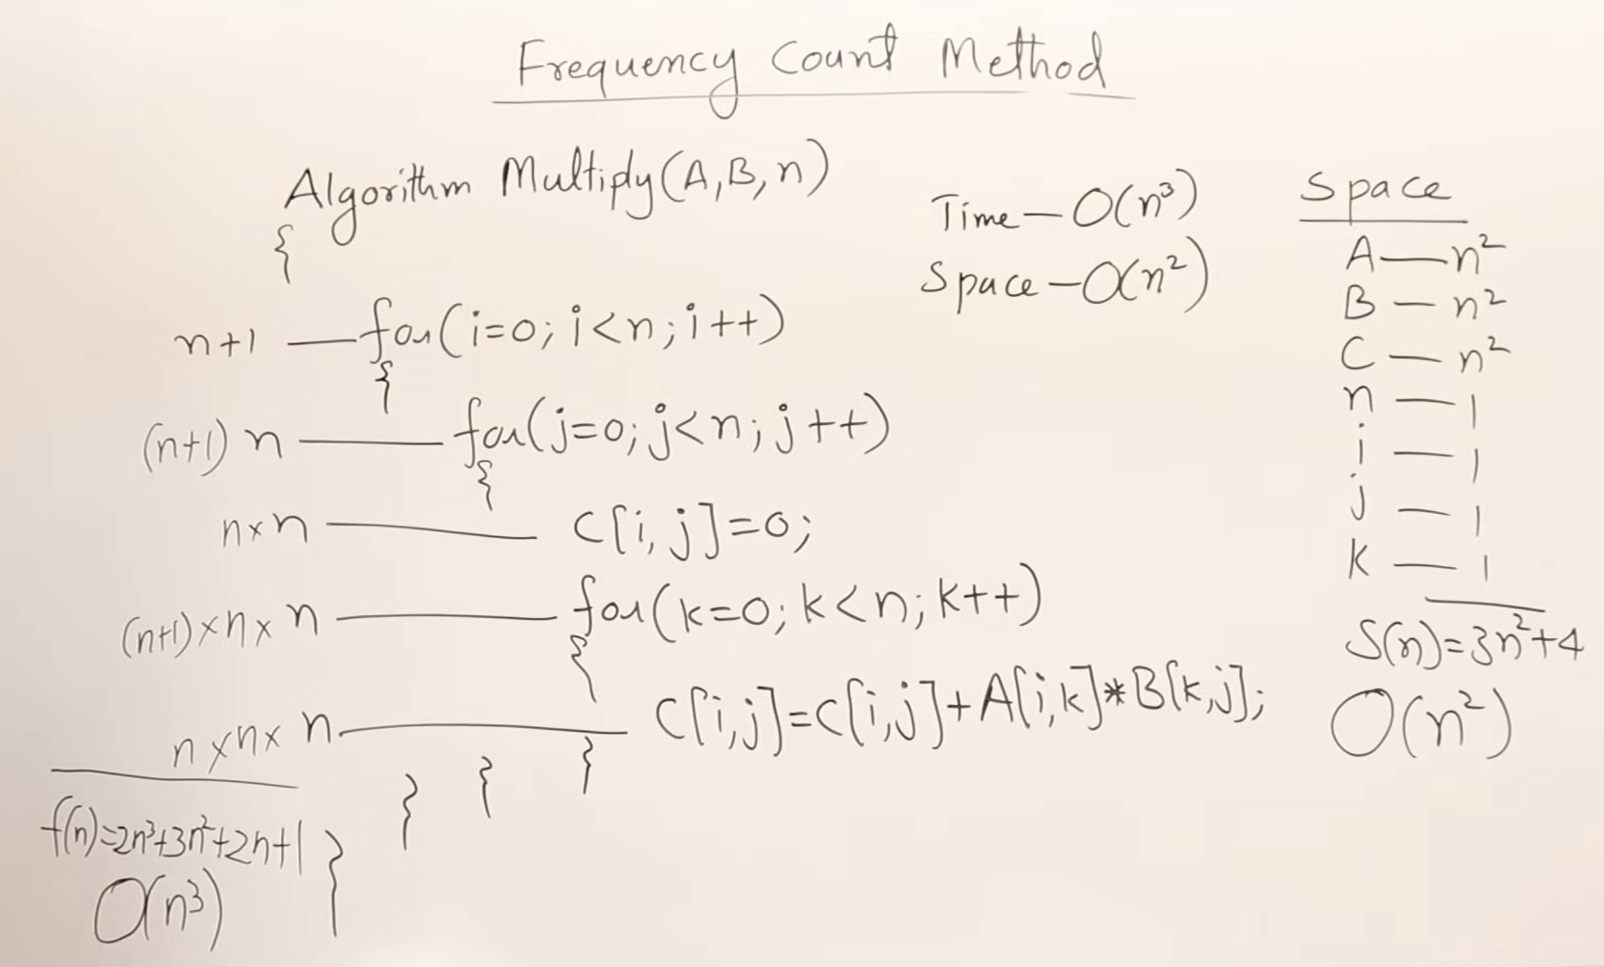 Frequency Count Method
Algorithm Multiply(A,B,n)
{
n+1 — for(i=0; i<n; i++)
{
(n+1) n — for(j=0; j<n; j++)
{
n×n — C[i,j]=0;
(n+1)×n×n — for(k=0; k<n; k++)
{
n×n×n — C[i,j]=C[i,j]+A[i,k]*B[k,j];
}
}
}
}
f(n)=2n³+3n²+2n+1
O(n³)
Time — O(n³)
Space — O(n²)
Space
A — n²
B — n²
C — n²
n — 1
i — 1
j — 1
k — 1
S(n)=3n²+4
O(n²)